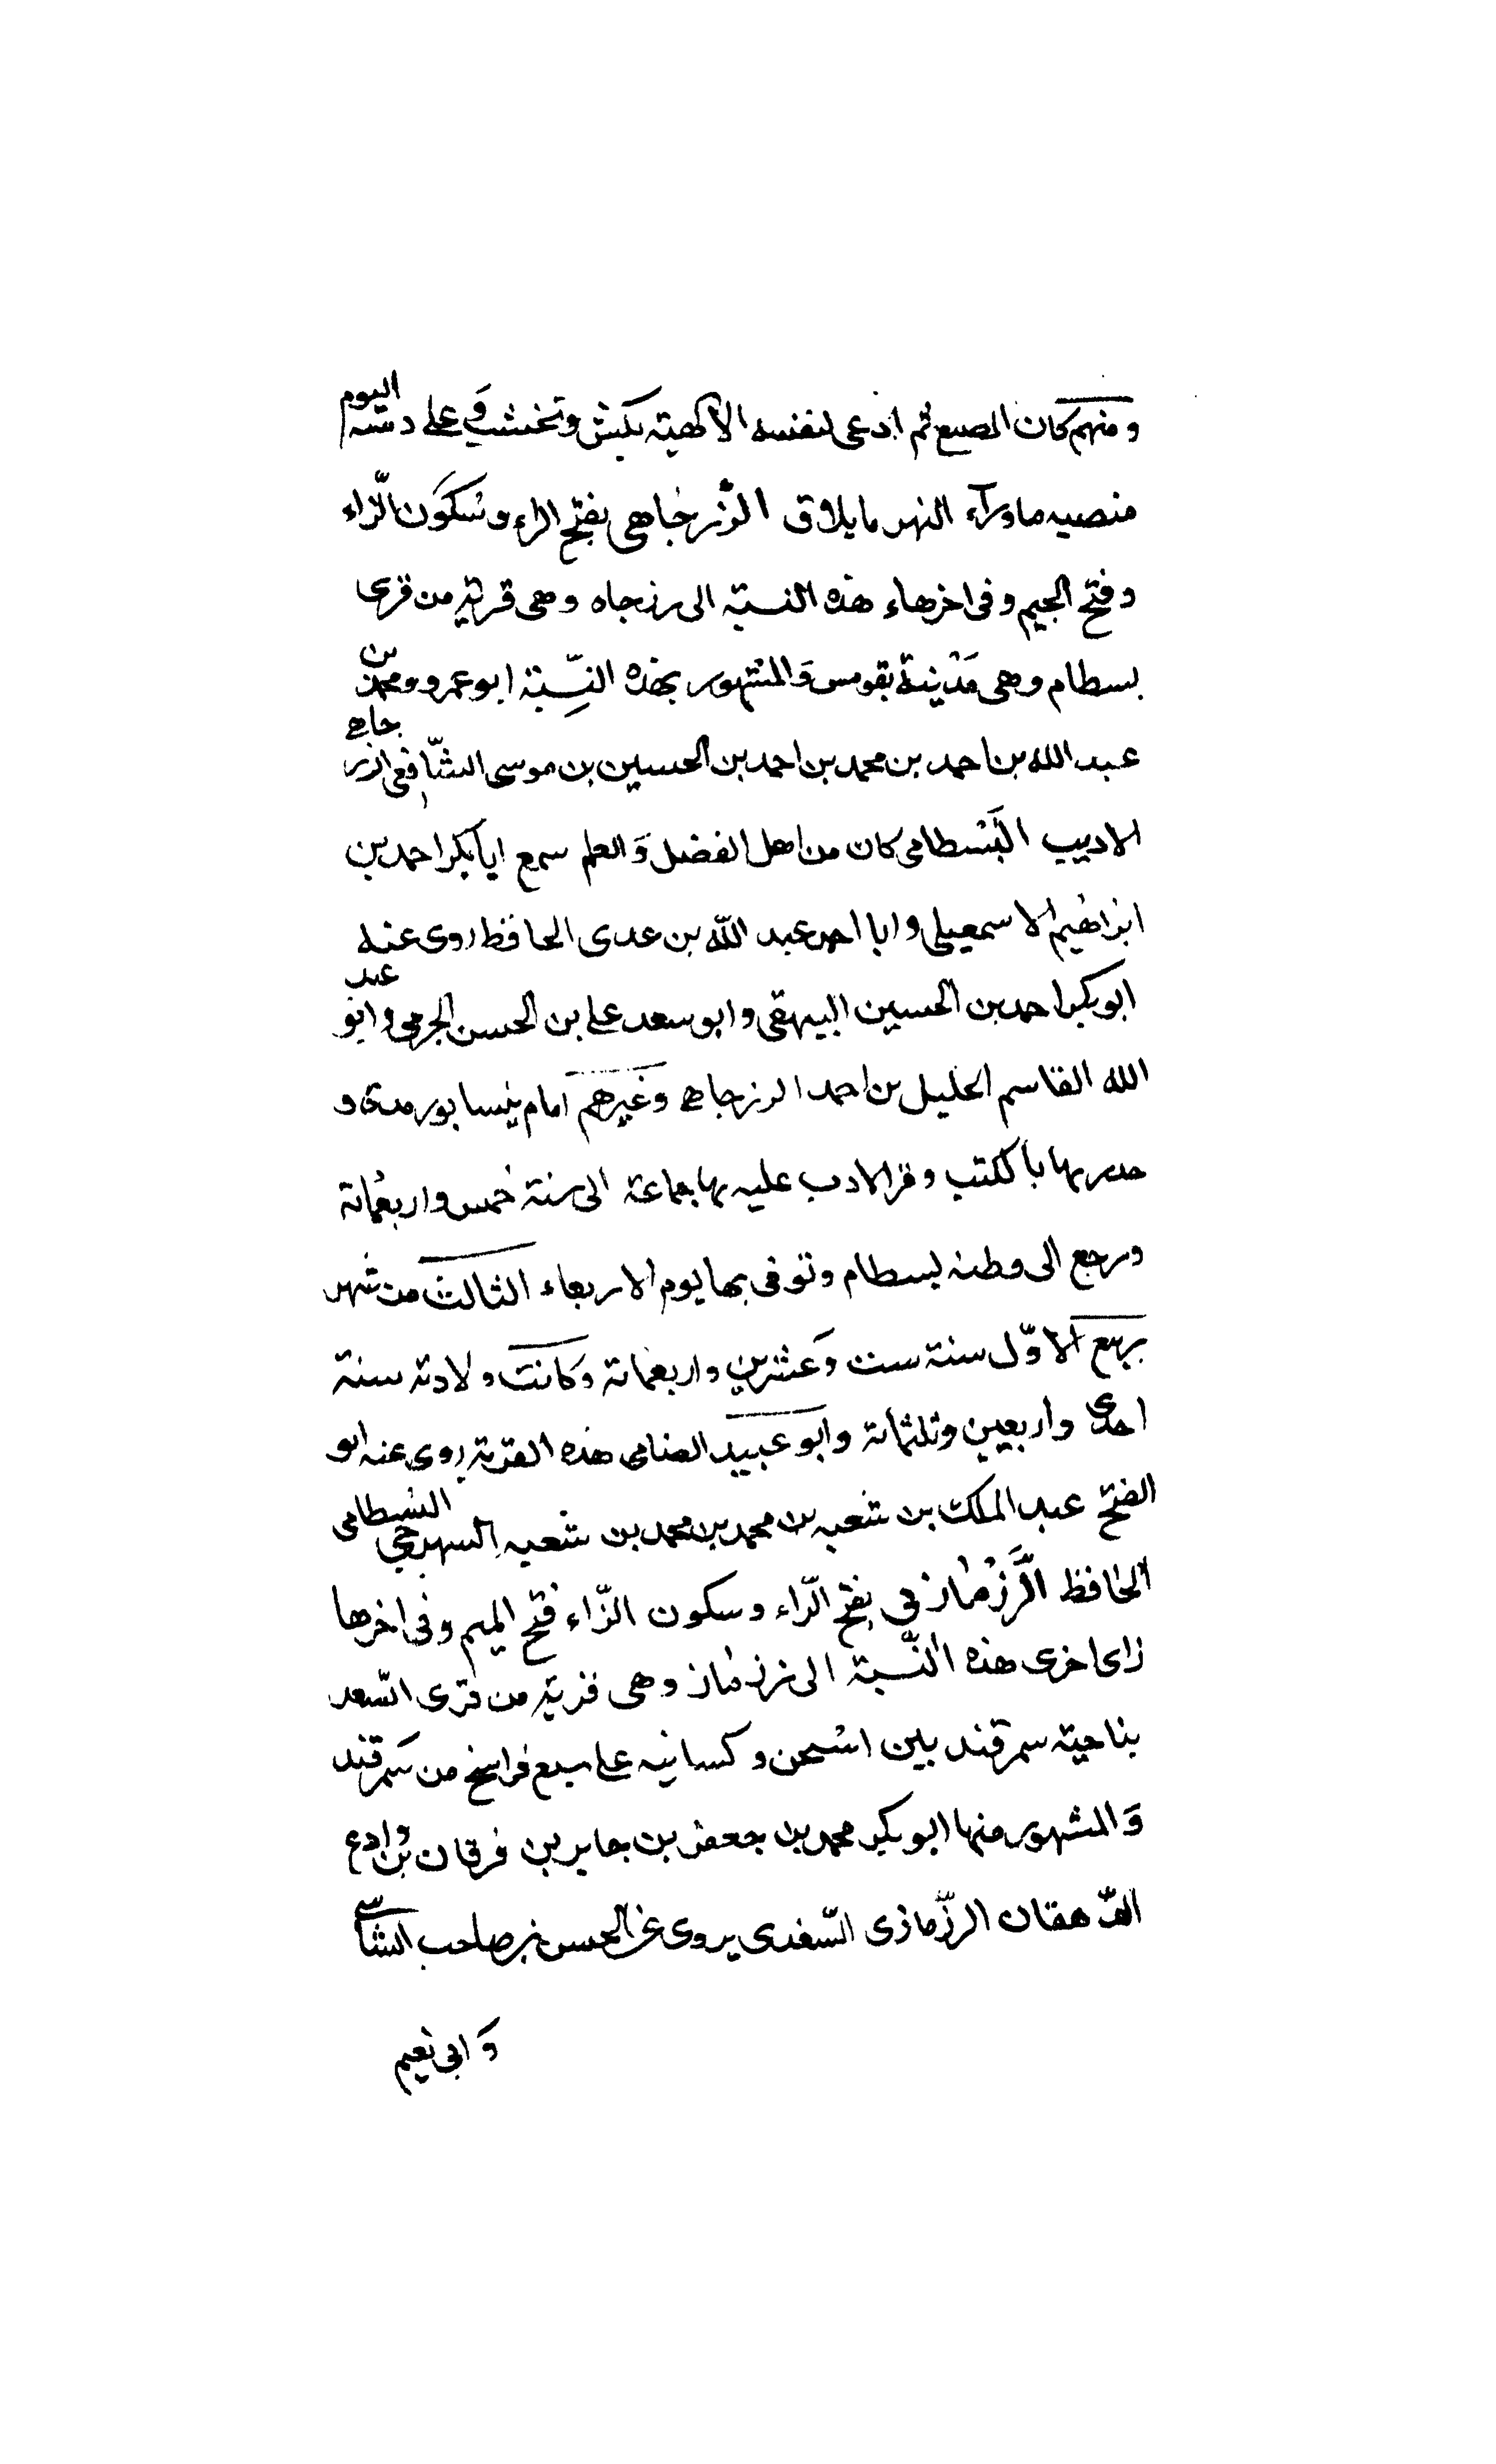 ومنهم كان المصبع ثم ادعى لنفسه الالهية بكش ونخشب وعلى دسه اليوم
منصيه ماورآء النهر مايلاق الرزجاهى بفتح الراء وسكون الزاء
وفتح الجيم وفى اخرهاء هذه النسبة الى رزجاه وهى قرية من قرى
بسطام وهى مدينة بقومس والمشهور بهذه النسبة ابو عمرو ومحمد بن
عبد الله بن احمد بن محمد بن احمد بن الحسين بن موسى الشافعى الرزجاهى
الاديب البسطامى كان من اهل الفضل والعلم سمع ابا بكر احمد بن
ابراهيم الاسمعيلى وابا احمد عبد الله بن عدى الحافظ روى عنه
ابو بكر احمد بن الحسين البيهقى وابو سعد على بن الحسن الجرمى وابو عبد
الله القاسم الخليل بن احمد الرزجاهى وغيرهم امام نيسابور مدة و
بها باككتب وقرالادب عليه بها جماعة الى سنة خمس واربعمائة
ورجع الى وطنه بسطام وتوفى بها يوم الاربعاء الثالث من شهر
ربيع الاول سنة ست وعشرين واربعمائة وكانت ولادته سنة
احدى واربعين وثلثمائة وابو عبيد الصنامى هذه القرية روى عنه ابو
الفتح عبد الملك بن شعبه بن محمد بن محمد بن شعبه السهرجى البسطامى
الحافظ الرزمازى بفتح الراء وسكون الزاء فتح الميم وفى اخرها
زاى اخرى هذه النسبة الى رزماز وهى قرية من قرى السعد
بناحية سمرقند بين اشيحن وكسانيه على سبع فراسخ من سمرقند
والمشهور منها ابو بكر محمد بن جعفر بن جابر بن فرقان بن وادع
الدهقان الرزمازى السغدى يروى عن الحسن بن صاحب الشاسى
وابى نعيم